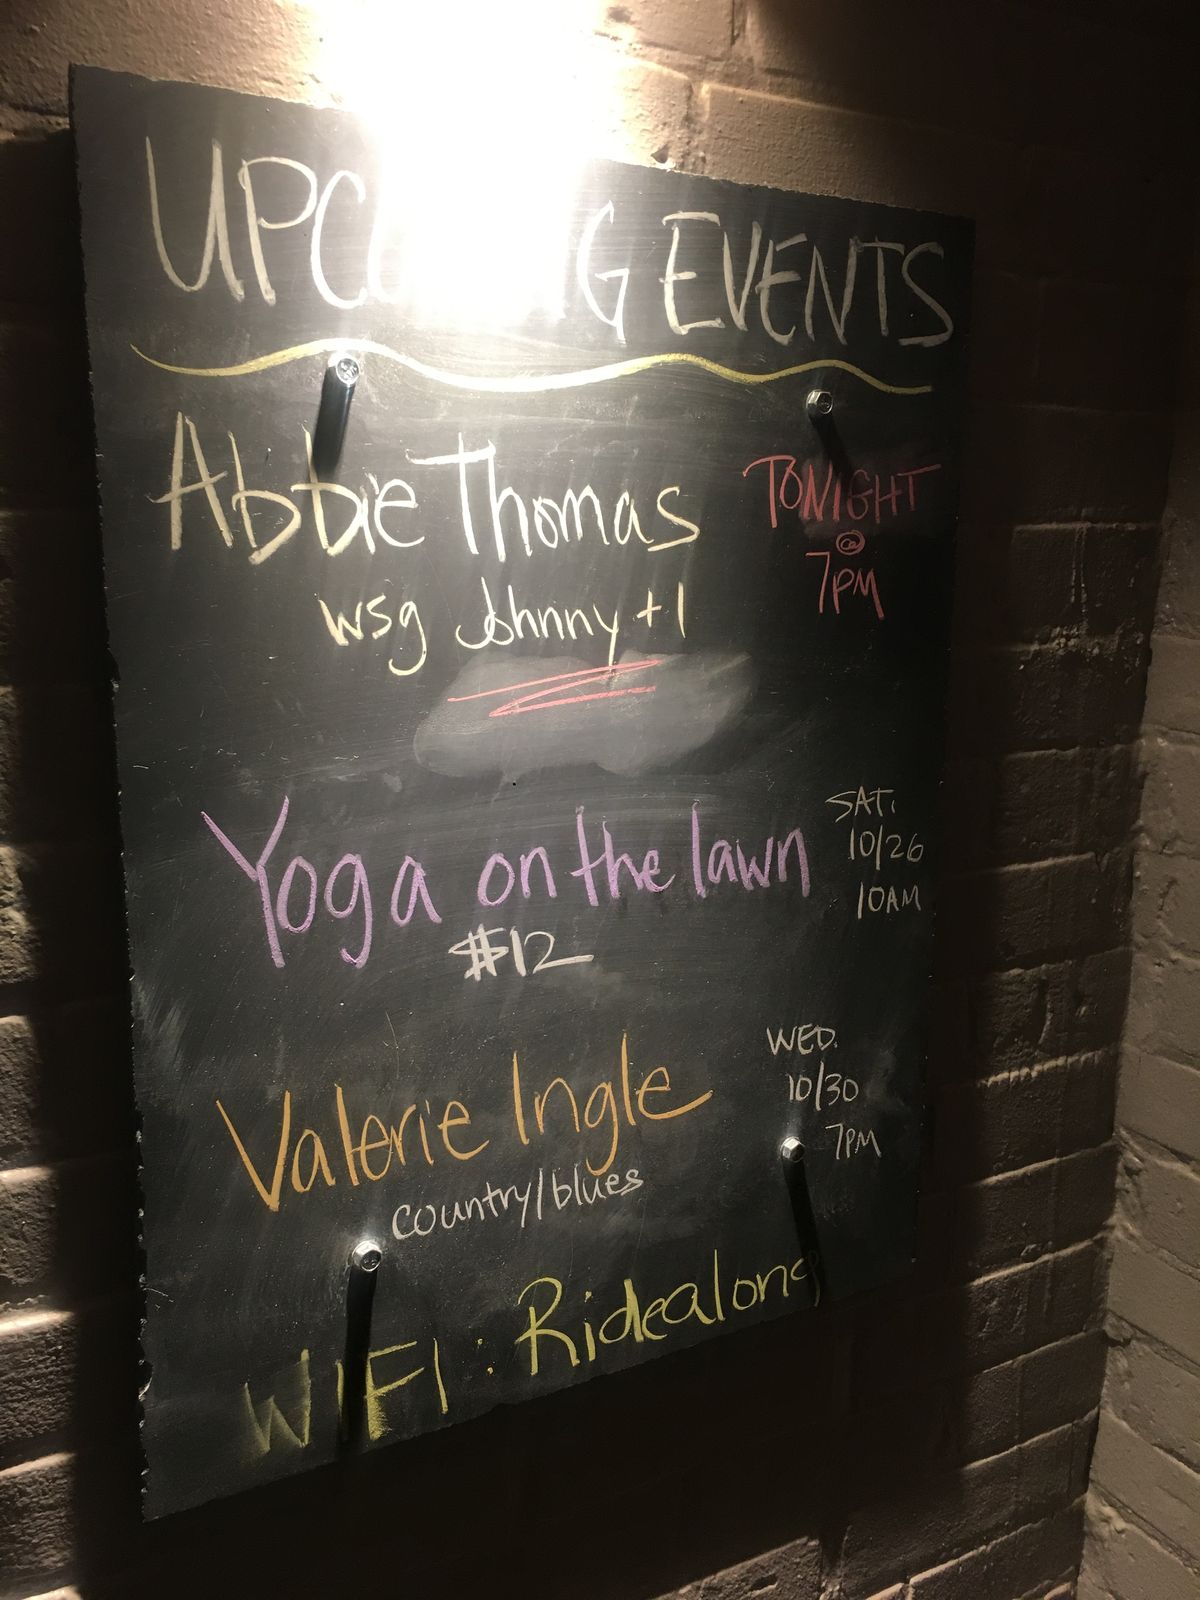 UPCOMING EVENTS
Abbie Thomas
wsg Johnny +1
TONIGHT
@
7PM
Yoga on the lawn
$12
SAT.
10/26
10AM
Valerie Ingle
country/blues
WED.
10/30
7PM
WIFI: Ridealong